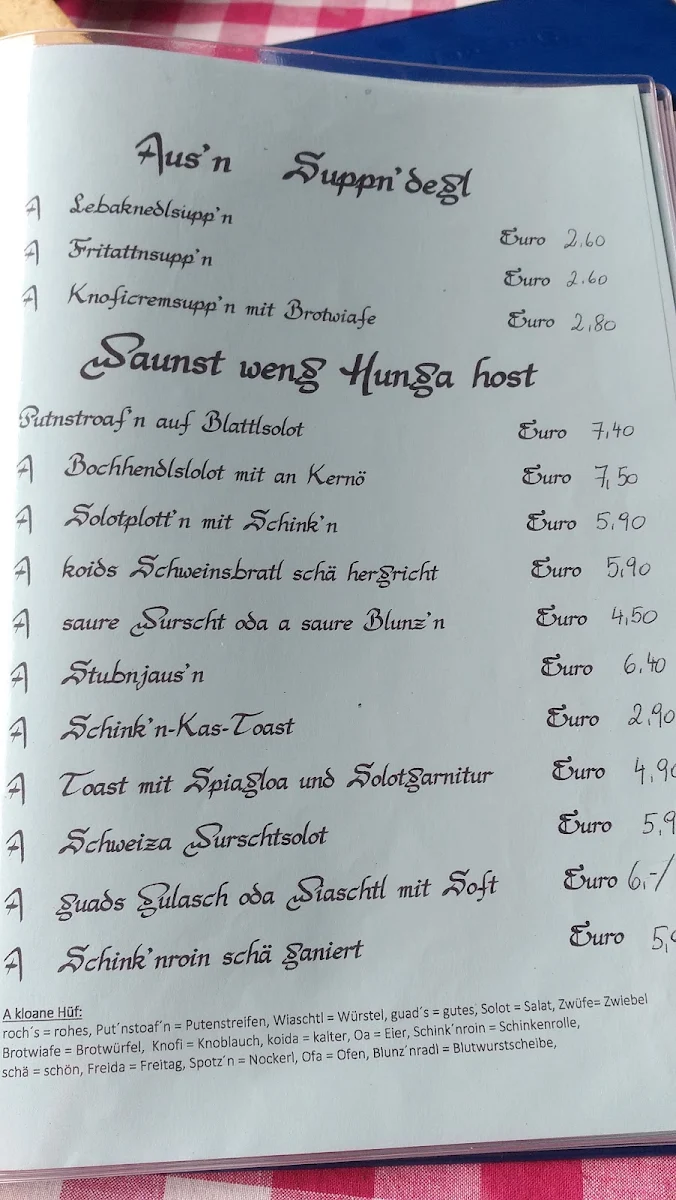 Aus'n Suppn'degl
A Lebaknedlsupp'n Euro 2,60
A Fritattnsupp'n Euro 2.60
A Knoficremsupp'n mit Brotwiafe Euro 2,80
Saunst weng Hunga host
Putnstroaf'n auf Blattlsolot Euro 7,40
A Bochhendlslolot mit an Kernö Euro 7,50
A Solotplott'n mit Schink'n Euro 5,90
A koids Schweinsbratl schä hergricht Euro 5,90
A saure Wurscht oda a saure Blunz'n Euro 4,50
A Stubnjaus'n Euro 6,40
A Schink'n-Kas-Toast Euro 2,90
A Toast mit Spiagloa und Solotgarnitur Euro 4,90
A Schweiza Wurschtsolot Euro 5,9
A guads Gulasch oda Wiaschtl mit Soft Euro 6,-/
A Schink'nroin schä ganiert Euro 5,
A kloane Hüf:
roch´s = rohes, Put´nstoaf´n = Putenstreifen, Wiaschtl = Würstel, guad´s = gutes, Solot = Salat, Zwüfe= Zwiebel
Brotwiafe = Brotwürfel, Knofi = Knoblauch, koida = kalter, Oa = Eier, Schink´nroin = Schinkenrolle,
schä = schön, Freida = Freitag, Spotz´n = Nockerl, Ofa = Ofen, Blunz´nradl = Blutwurstscheibe,